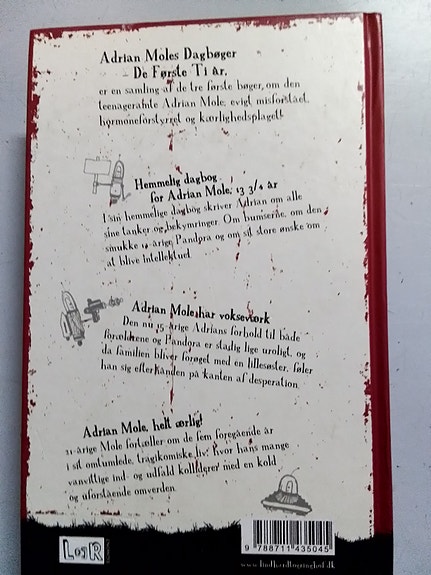 Adrian Moles Dagbøger
De Første Ti år,
er en samling af de tre første bøger, om den
teenageramte Adrian Mole, evigt misforstået,
hormonforstyrret og kærlighedsplaget!
Hemmelig dagbog
for Adrian Mole, 13 3/4 år
I sin hemmelige dagbog skriver Adrian om alle
sine tanker og bekymringer. Om bumserne, om den
smukke 14-årige Pandora og om sit store ønske om
at blive intellektuel.
Adrian Mole har vokseværk
Den nu 15-årige Adrians forhold til både
forældrene og Pandora er stadig lige uroligt, og
da familien bliver forøget med en lillesøster, føler
han sig efterhånden på kanten af desperation.
Adrian Mole, helt ærligt
21-årige Mole fortæller om de fem foregående år
i sit omtumlede, tragikomiske liv, hvor hans mange
vanvittige ind- og udfald kolliderer med en kold
og uforstående omverden.
L&R
9 788711 435045
www.lindhardtogringhof.dk